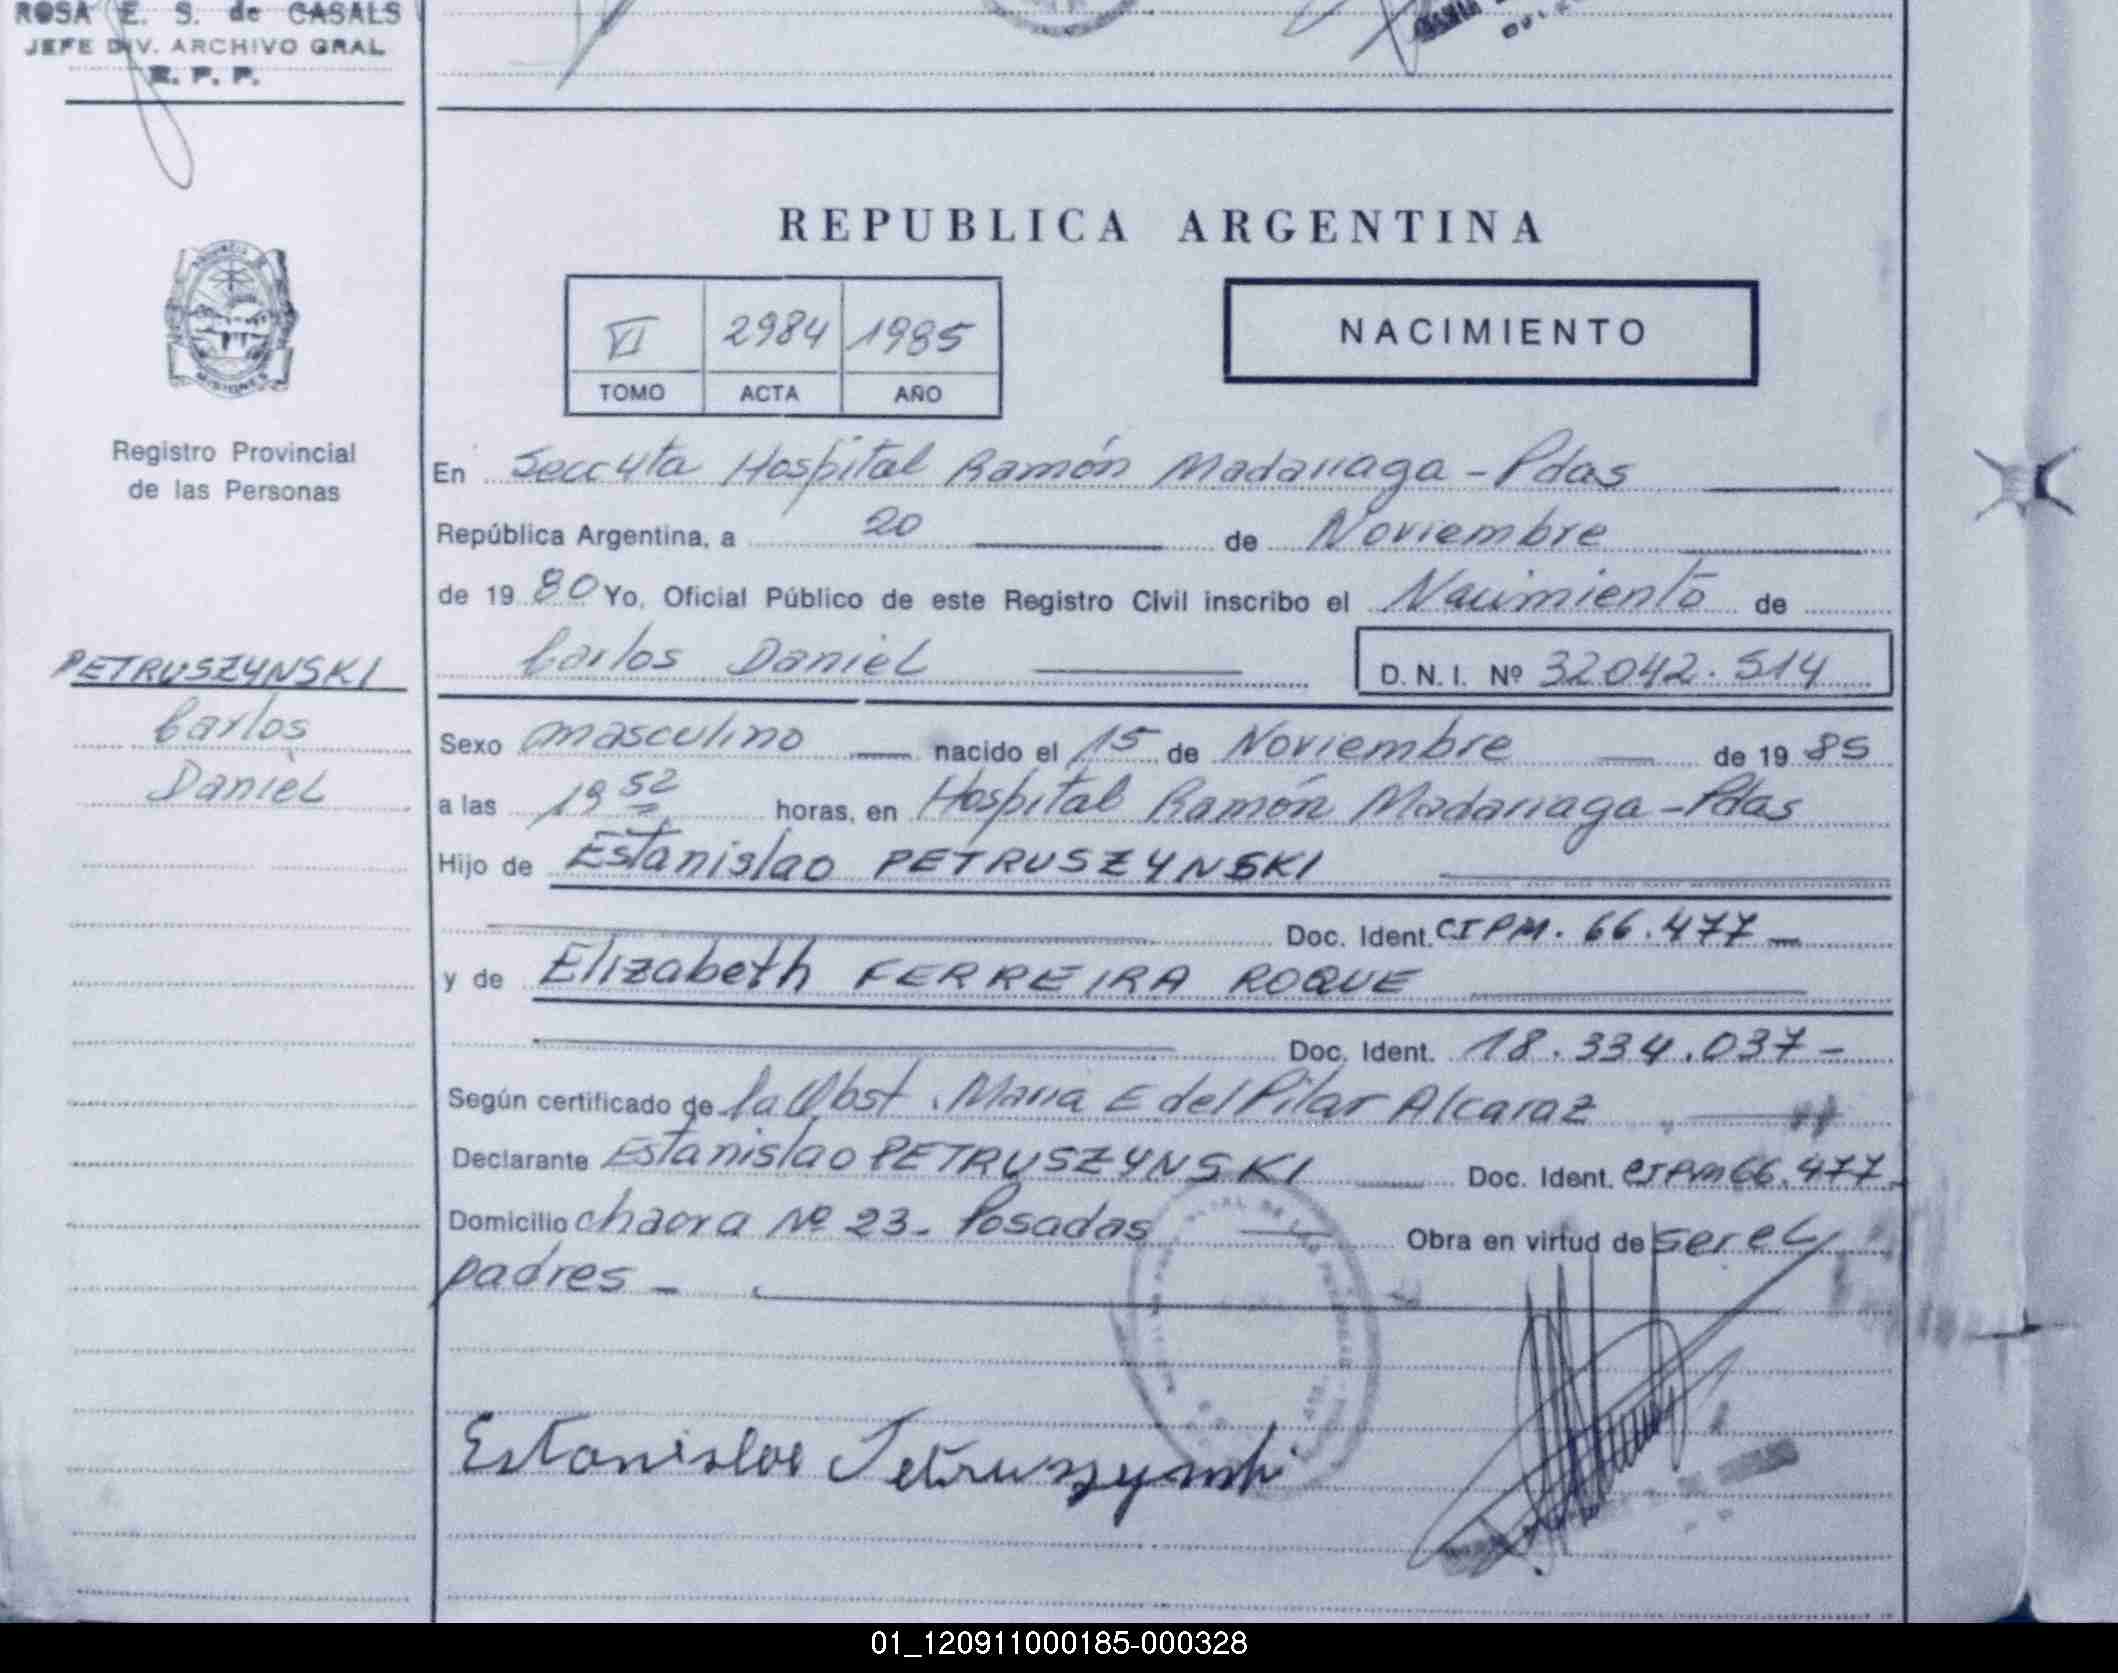 ROSA E. S. de CASALS
JEFE DIV. ARCHIVO GRAL
R. P. P.
REPUBLICA ARGENTINA
VI 2984 1985
TOMO ACTA AÑO
NACIMIENTO
PROVINCIA DE
MISIONES
Registro Provincial
de las Personas
PETRUSZYNSKI
Carlos
Daniel
En Secc 4ta Hospital Ramón Madariaga - Pdas
República Argentina, a 20 de Noviembre
de 19 80 Yo, Oficial Público de este Registro Civil inscribo el Nacimiento de
Carlos Daniel D. N. I. Nº 32042.514
Sexo masculino nacido el 15 de Noviembre de 19 85
a las 19 52 horas, en Hospital Ramón Madariaga - Pdas
Hijo de Estanislao PETRUSZYNSKI
Doc. Ident. CIPM. 66.477 -
y de Elizabeth FERREIRA ROQUE
Doc. Ident. 18.334.037 -
Según certificado de la Obst. Maria E del Pilar Alcaraz
Declarante Estanislao PETRUSZYNSKI Doc. Ident. CIPM 66.477-
Domicilio chacra Nº 23 - Posadas Obra en virtud de ser el
padres -
Estanislao Petruszynski
01_120911000185-000328